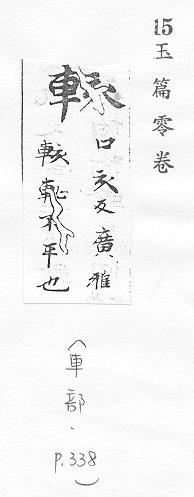 15 玉篇零卷
輆
口亥反廣雅
輆不平也
(車部.P.338)